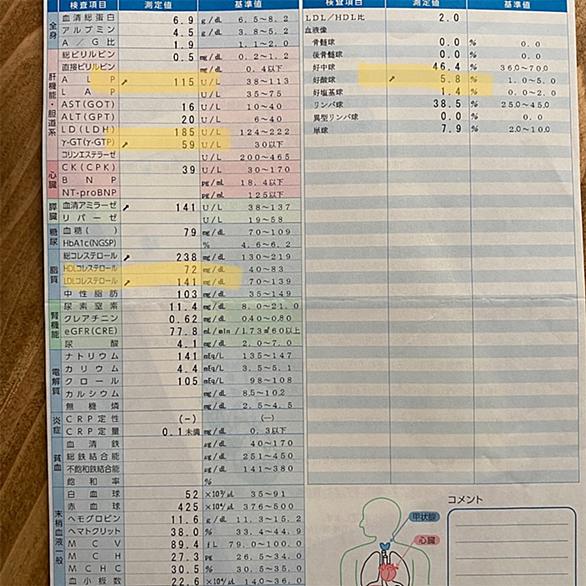 検査項目 測定値 基準値
全身
血清総蛋白 6.9 g/dL 6.5~8.2
アルブミン 4.5 g/dL 3.8~5.2
A/G比 1.9 1.1~2.0
肝機能・胆道系
総ビリルビン 0.5 mg/dL 0.2~1.2
直接ビリルビン mg/dL 0.4以下
ALP ↗ 115 U/L 38~113
LAP U/L 35~75
AST(GOT) 16 U/L 10~40
ALT(GPT) 20 U/L 6~40
LD(LDH) 185 U/L 124~222
γ-GT(γ-GTP) ↗ 59 U/L 30以下
コリンエステラーゼ U/L 200~465
心臓
CK(CPK) 39 U/L 30~170
BNP pg/mL 18.4以下
NT-proBNP pg/mL 125以下
膵臓
血清アミラーゼ ↗ 141 U/L 38~137
リパーゼ U/L 19~58
糖尿
血糖( ) 79 mg/dL 70~109
HbA1c(NGSP) % 4.6~6.2
脂質
総コレステロール ↗ 238 mg/dL 130~219
HDLコレステロール 72 mg/dL 40~83
LDLコレステロール ↗ 141 mg/dL 70~139
中性脂肪 103 mg/dL 35~149
腎機能
尿素窒素 11.4 mg/dL 8.0~21.0
クレアチニン 0.62 mg/dL 0.40~0.80
eGFR(CRE) 77.8 mL/min/1.73㎡ 60以上
尿酸 4.1 mg/dL 2.0~7.0
電解質
ナトリウム 141 mEq/L 135~147
カリウム 4.4 mEq/L 3.5~5.1
クロール 105 mEq/L 98~108
カルシウム mg/dL 8.5~10.2
無機燐 mg/dL 2.5~4.5
炎症
CRP定性 (-) (-)
CRP定量 0.1未満 mg/dL 0.3以下
貧血
血清鉄 μg/dL 40~170
総鉄結合能 μg/dL 251~450
不飽和鉄結合能 μg/dL 141~380
飽和率 %
末梢血液一般
白血球 52 ×10²/μL 35~91
赤血球 425 ×10⁴/μL 376~500
ヘモグロビン 11.6 g/dL 11.3~15.2
ヘマトクリット 38.0 % 33.4~44.9
MCV 89.4 fL 79.0~100.0
MCH 27.3 pg 26.5~34.0
MCHC 30.5 % 30.5~35.0
血小板数 22.6 ×10⁴/μL 14.0~36.
検査項目 測定値 基準値
LDL/HDL比 2.0
血液像
骨髄球 0.0 % 0.0
後骨髄球 0.0 % 0.0
好中球 46.4 % 36.0~70.0
好酸球 ↗ 5.8 % 1.0~5.0
好塩基球 1.4 % 0.0~2.0
リンパ球 38.5 % 25.0~45.0
異型リンパ球 0.0 % 0.0
単球 7.9 % 2.0~10.0
甲状腺
心臓
コメント